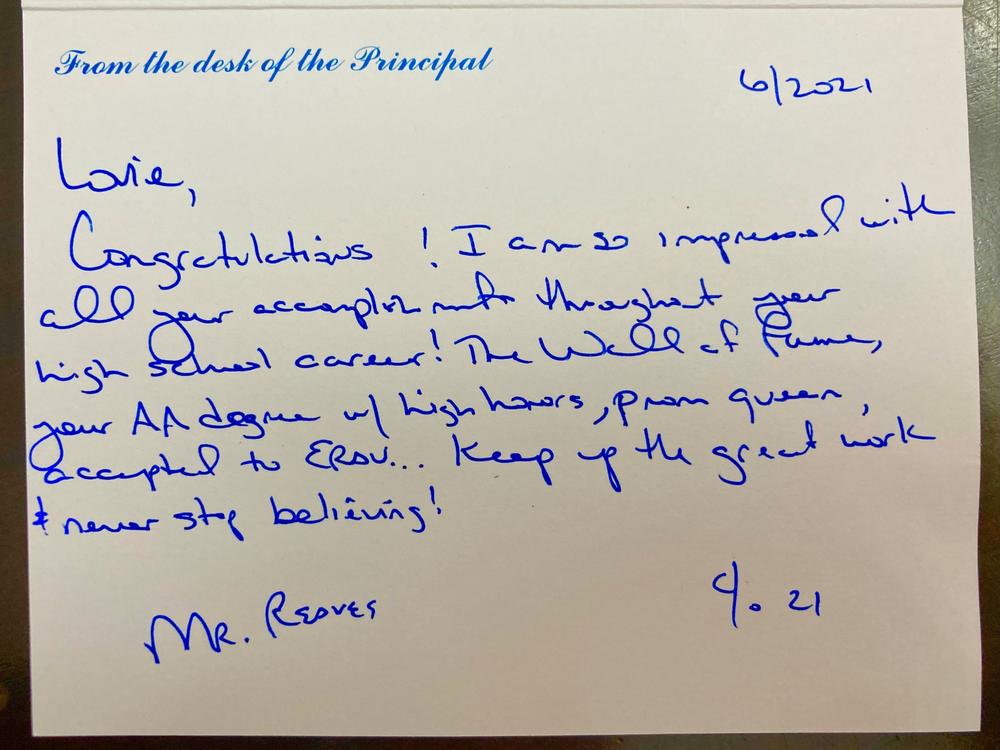 From the desk of the Principal
6/2021
Lorie,
Congratulations! I am so impressed with
all your accomplishments throughout your
high school career! The Wall of Fame,
your AA degree w/ high honors, prom queen,
accepted to ERAU... Keep up the great work
& never stop believing!
Mr. Reaves
21